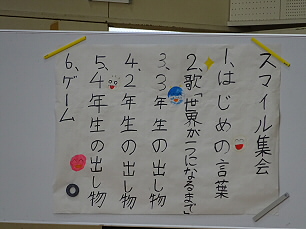 スマイル集会
1、はじめの言葉
2、歌「世界が一つになるまで」
3、3年生の出し物
4、2年生の出し物
5、4年生の出し物
6、ゲーム